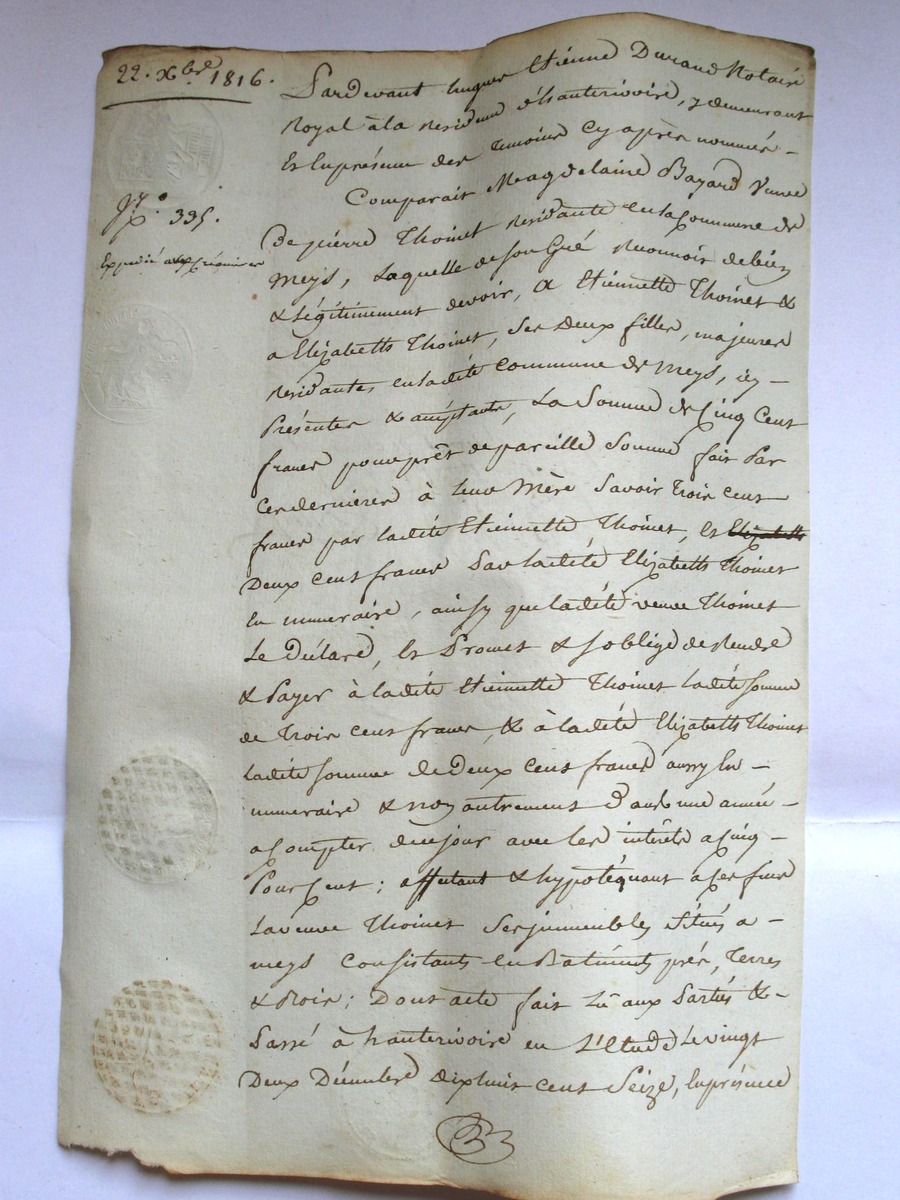 22. Xbre 1816.
N.° 335.
Expédié aux
Pardevant hugue Etienne Durand Notaire
Royal à la residence d'hauterivoire, y demeurant
Et En présence des temoins Cy après nommés –
Comparait Magdelaine Bayard Veuve
De pierre Thoinet residante en la Commune de
Meys, Laquelle de son Gré reconnoit debien
& Légitimement devoir, A Etiennette Thoinet &
a Elizabeth Thoinet, Ses Deux filles, majeures
residantes en ladite Commune de Meys, icy –
Présentes & acceptants, La Somme de Cinq Cent
francs pour prêt de pareille Somme fait Par
Ces dernieres à leur Mère Savoir trois cent
francs par ladite Etiennette Thoinet, Et Elizabeth
Deux cent francs Par ladite Elizabeth Thoinet
En numeraire, ainsy que ladite veuve Thoinet
Le Déclare, Et Promet & s'oblige de Rendre
& Payer à ladite Etiennette Thoinet ladite Somme
de trois cent francs, & à ladite Elizabeth Thoinet
ladite Somme de Deux Cent francs aussy En –
numeraire & non autrement Dans une année –
a Compter du jour avec les intérêts a Cinq –
Pour Cent ; affectant & hypotéquant a ces fins
La veuve Thoinet Ses immeubles Situés a –
meys Consistants en Batiments prés, Terres
& Bois ; Dont acte fait Lû aux Parties & –
Passé à hauterivoire en L'Etude Le vingt
Deux Décembre dix huit cent Seize, En présence